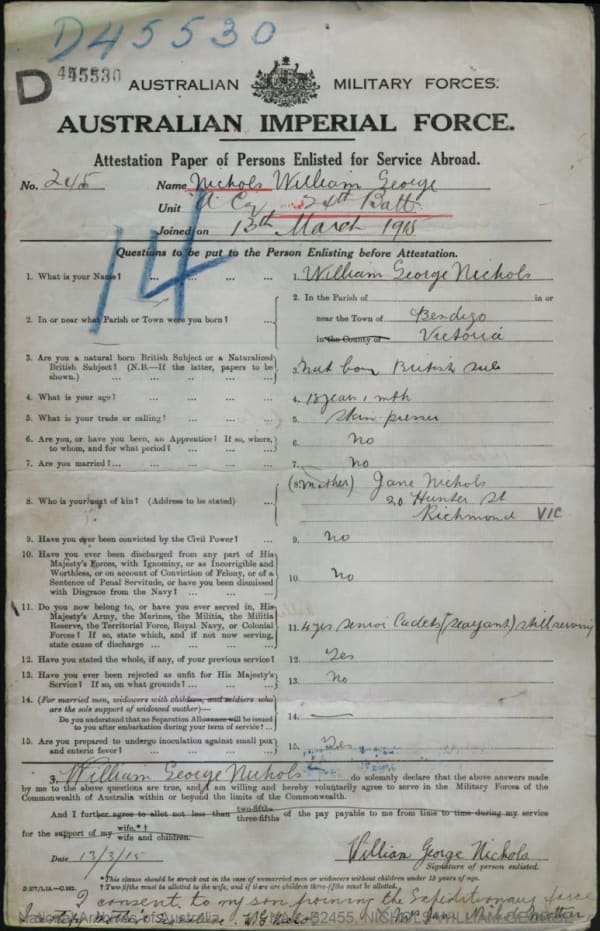 D45530
D 455530
AUSTRALIAN MILITARY FORCES.
AUSTRALIAN IMPERIAL FORCE.
Attestation Paper of Persons Enlisted for Service Abroad.
No. 245 Name Nichols William George
Unit A Coy 24th Batt
Joined on 13th March 1915
14
Questions to be put to the Person Enlisting before Attestation.
1. What is your Name? ... ... ... ... 1. William George Nichols
2. In or near what Parish or Town were you born? ... 2. In the Parish of in or
near the Town of Bendigo
in the County of Victoria
3. Are you a natural born British Subject or a Naturalized
British Subject? (N.B.—If the latter, papers to be
shown.) ... ... ... ... 3. Nat born British sub
4. What is your age? ... ... ... ... 4. 18 years 1 mth
5. What is your trade or calling? ... ... ... 5. skin presser
6. Are you, or have you been, an Apprentice? If so, where,
to whom, and for what period? ... ... ... 6. no
7. Are you married? ... ... ... ... 7. no
8. Who is your next of kin? (Address to be stated) ... 8. (mother) Jane Nichols
20 Hunter St
Richmond VIC
9. Have you ever been convicted by the Civil Power? ... 9. no
10. Have you ever been discharged from any part of His
Majesty's Forces, with Ignominy, or as Incorrigible and
Worthless, or on account of Conviction of Felony, or of a
Sentence of Penal Servitude, or have you been dismissed
with Disgrace from the Navy? ... ... ... 10. No
11. Do you now belong to, or have you ever served in, His
Majesty's Army, the Marines, the Militia, the Militia
Reserve, the Territorial Force, Royal Navy, or Colonial
Forces? If so, state which, and if not now serving,
state cause of discharge ... ... ... 11. 4 yrs senior Cadets (seargant) still serving
12. Have you stated the whole, if any, of your previous service? 12. Yes
13. Have you ever been rejected as unfit for His Majesty's
Service? If so, on what grounds? ... ... ... 13. No
14. (For married men, widowers with children, and soldiers who
are the sole support of widowed mother)—
Do you understand that no Separation Allowance will be issued
to you after embarkation during your term of service? ... 14. —
15. Are you prepared to undergo inoculation against small pox
and enteric fever? ... ... ... ... 15. Yes
I, William George Nichols do solemnly declare that the above answers made
by me to the above questions are true, and I am willing and hereby voluntarily agree to serve in the Military Forces of the
Commonwealth of Australia within or beyond the limits of the Commonwealth.
And I further agree to allot not less than two-fifths three-fifths of the pay payable to me from time to time during my service
for the support of my wife.*† wife and children.
Date 13/3/15 William George Nichols
Signature of person enlisted.
*This clause should be struck out in the case of unmarried men or widowers without children under 18 years of age.
† Two-fifths must be allotted to the wife, and if there are children three-fifths must be allotted.
I consent to my son joining the Expeditionary force
National Archives of Australia NAA: B2455, NICHOLS WILLIAM GEORGE
Mrs Jane Nichols mother